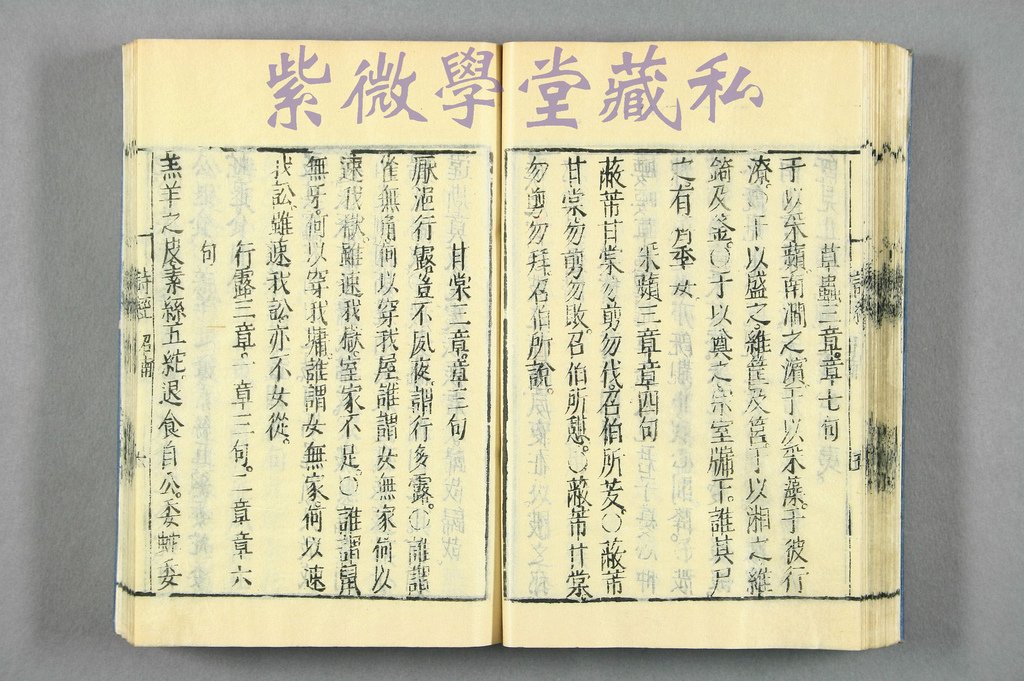 紫微學堂藏私
草蟲三章章七句
于以采蘋南澗之濱于以采藻于彼行
潦○于以盛之維筐及筥于以湘之維
錡及釜○于以奠之宗室牖下誰其尸
之有齊季女
采蘋三章章四句
蔽芾甘棠勿剪勿伐召伯所茇○蔽芾
甘棠勿剪勿敗召伯所憩○蔽芾甘棠
勿剪勿拜召伯所說
甘棠三章章三句
厭浥行露豈不夙夜謂行多露○誰謂
雀無角何以穿我屋誰謂女無家何以
速我獄雖速我獄室家不足○誰謂鼠
無牙何以穿我墉誰謂女無家何以速
我訟雖速我訟亦不女從
行露三章一章三句二章章六
句
羔羊之皮素絲五紽退食自公委蛇委
詩經 召南 六